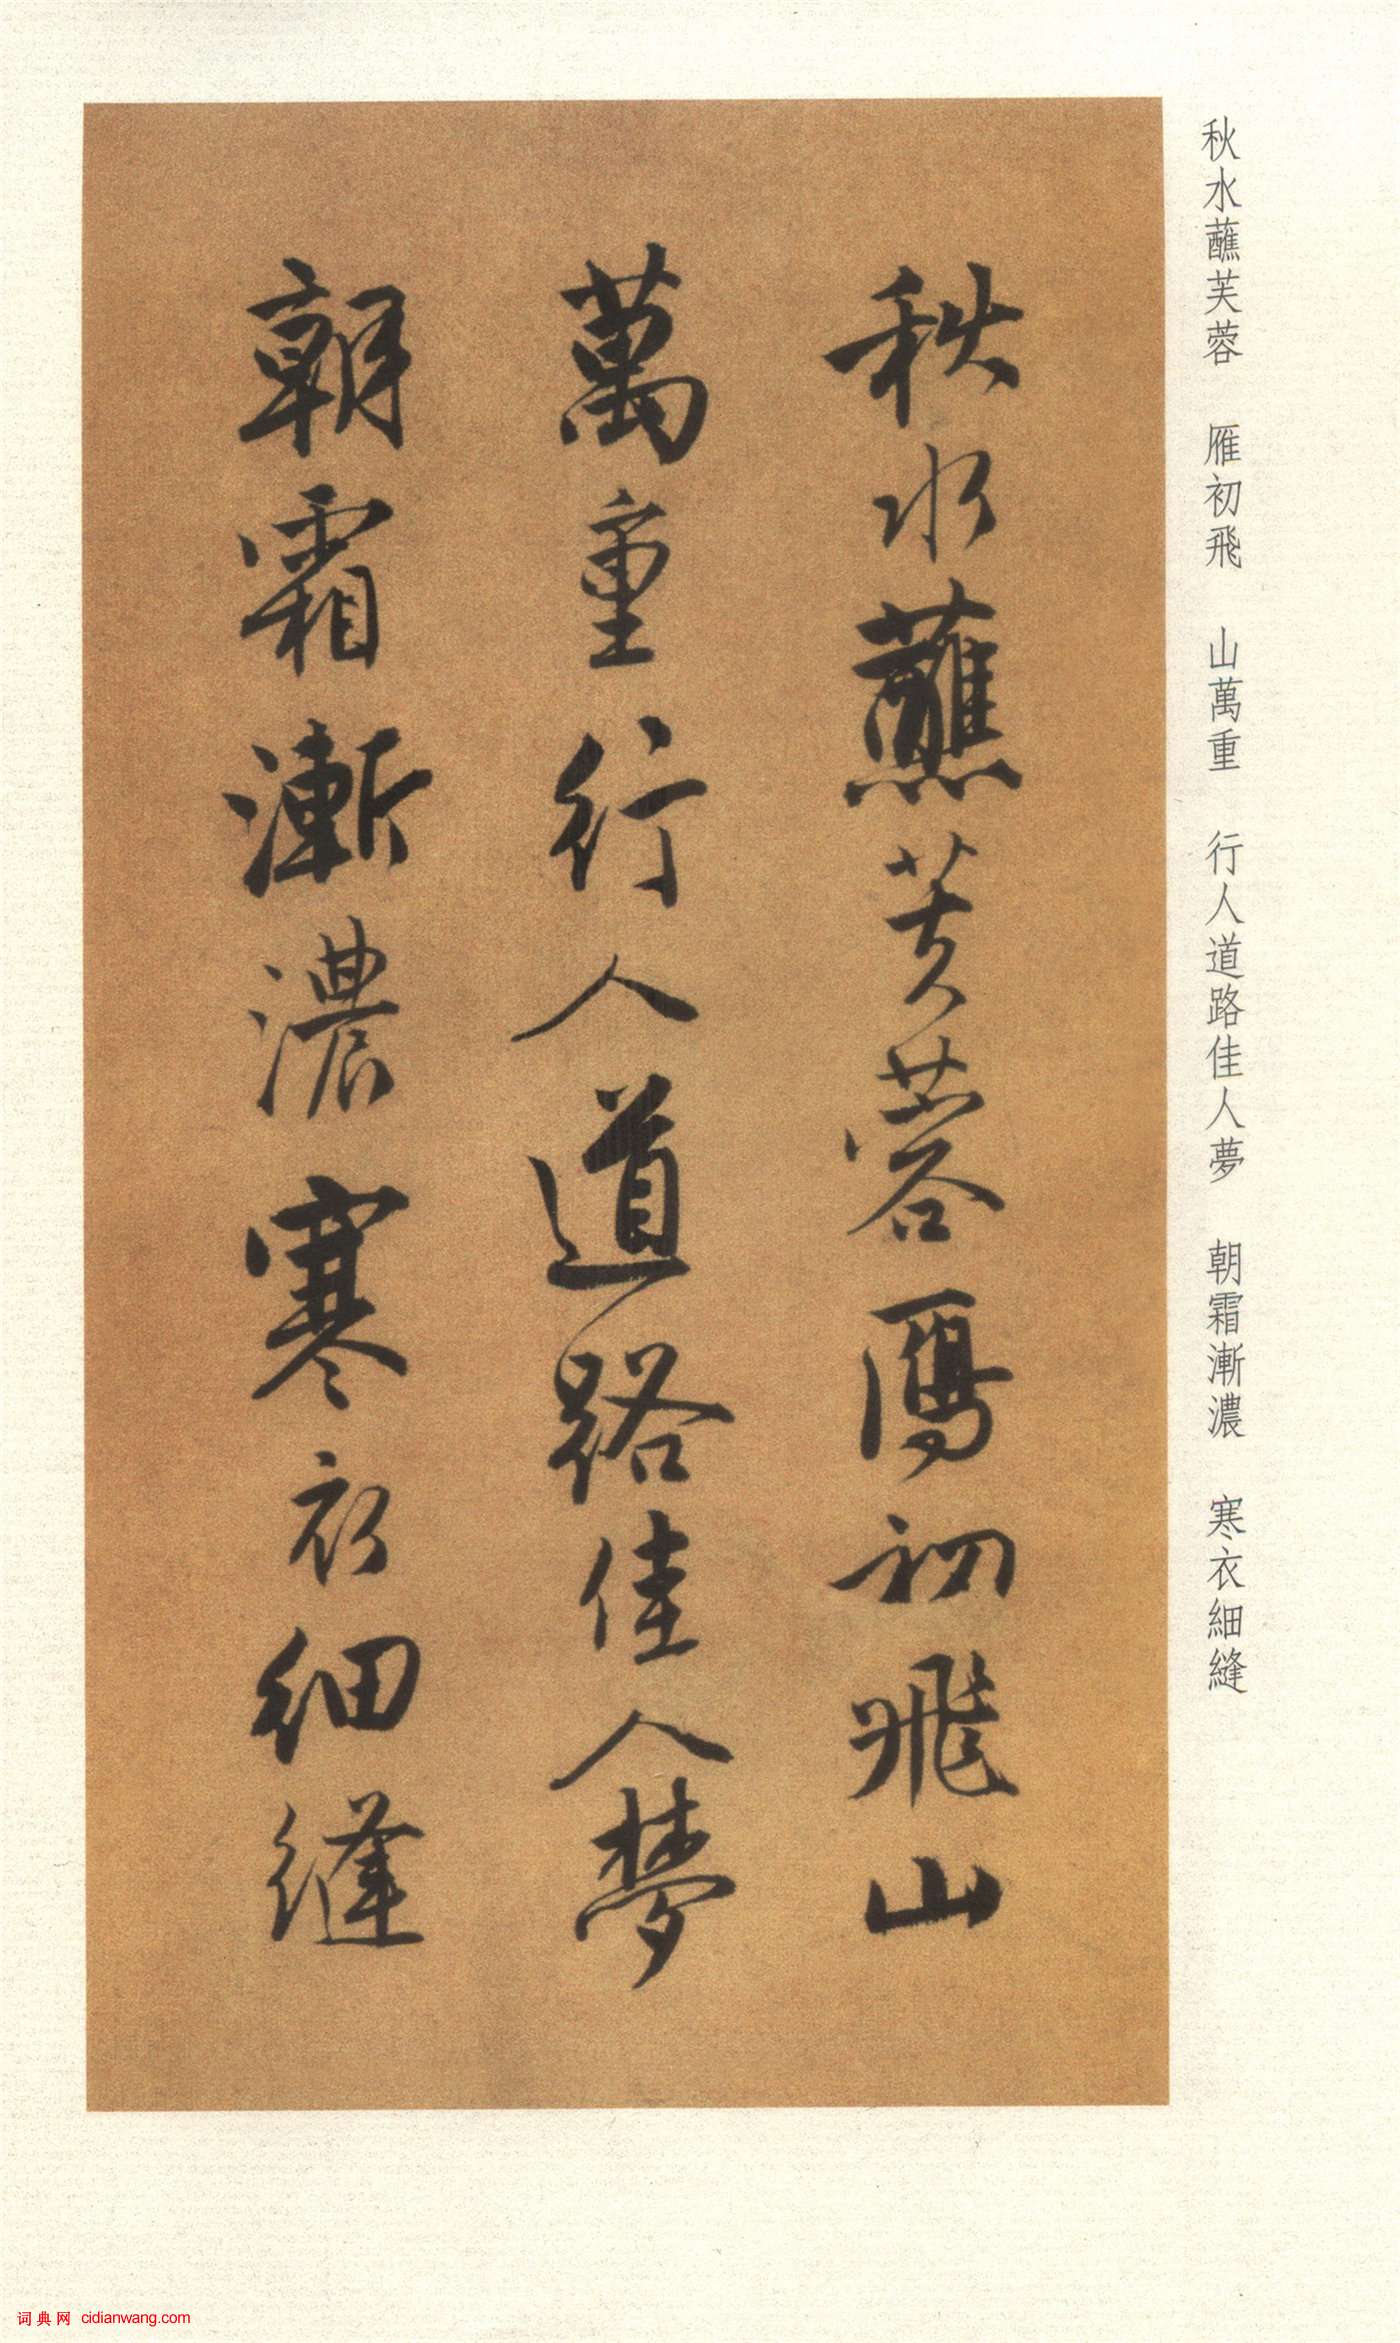 秋水蘸芙蓉 雁初飛 山萬重 行人道路佳人夢 朝霜漸濃 寒衣細縫
秋水蘸芙蓉鴈初飛山
萬重行人道路佳人夢
朝霜漸濃寒衣細縫
词典网 cidianwang.com